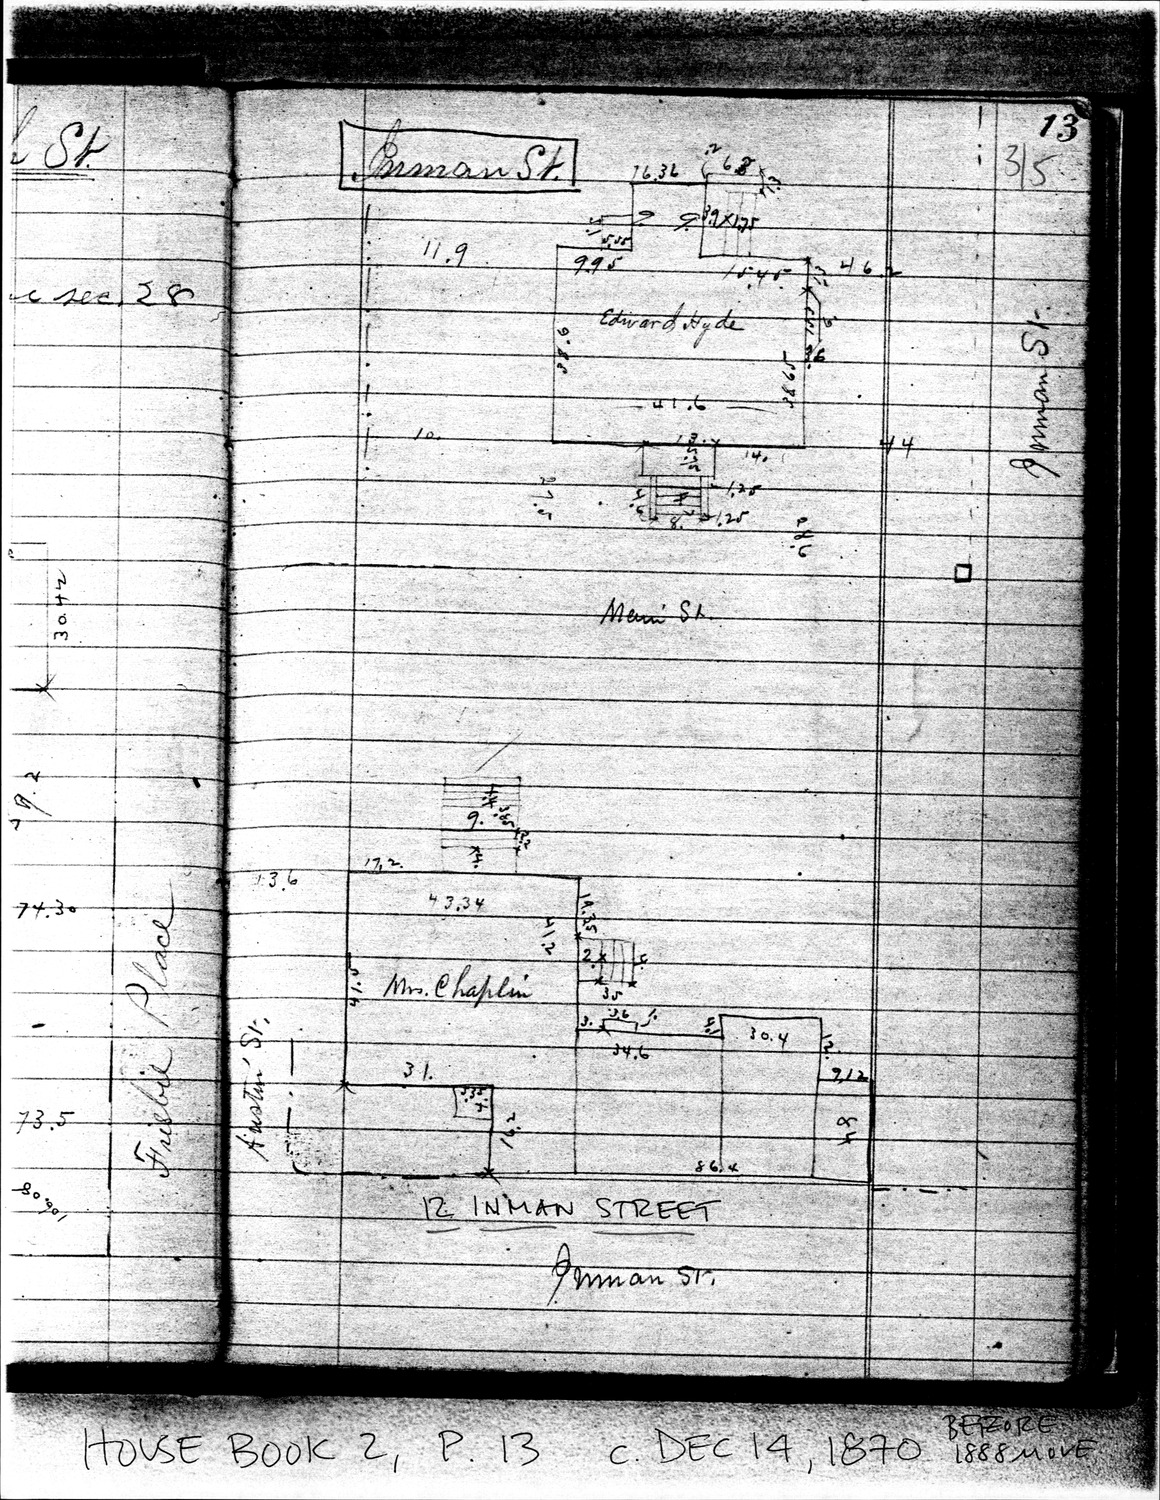 St.
sec. 28
30.42
9.2
74.30
73.5
Frisbie Place
13
3/5
Inman St.
16.36
.2
6.8
39 x 1.75
5.55
11.9
9.95
15.45
46.2
Edward Hyde
Inman St.
41.6
10.
13.
14.
44
1.25
4
8.
1.25
Main St.
4.
9.
3.85
4.
17.2
13.6
43.34
19.35
41.2
2.
4.
35
Mrs. Chaplin
41.5
3.
3.6
1.
34.6
30.4
12.
9.12
31.
5.35
4.
16.2
Austin St.
49
86.4
12 INMAN STREET
Inman St.
HOUSE BOOK 2, P. 13 c. DEC 14, 1870 BEFORE
1888 MOVE